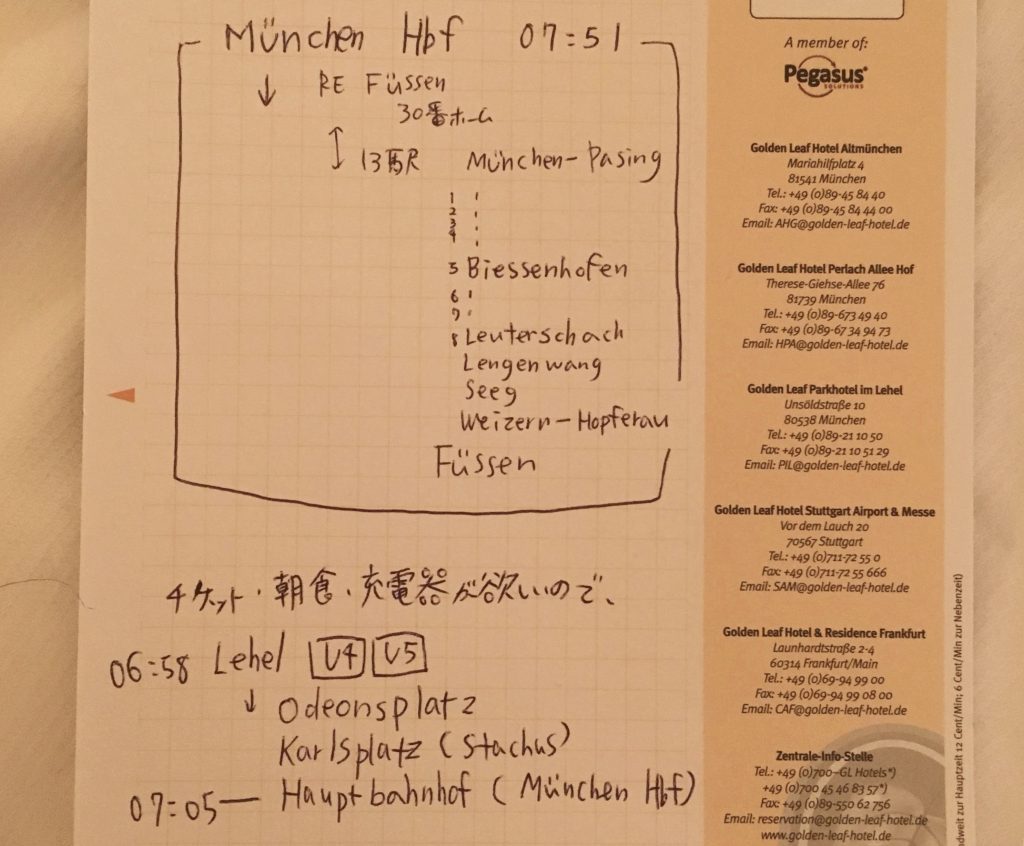 München Hbf 07:51
↓ RE Füssen
30番ホーム
↕ 13駅 München-Pasing
1 〃
2
3
4
5 Biessenhofen
6
7
8 Leuterschach
Lengenwang
Seeg
Weizern-Hopferau
Füssen
チケット・朝食・充電器が欲いので、
06:58 Lehel U4 U5
↓ Odeonsplatz
Karlsplatz (Stachus)
07:05— Hauptbahnhof (München Hbf)
A member of:
Pegasus
SOLUTIONS
Golden Leaf Hotel Altmünchen
Mariahilfplatz 4
81541 München
Tel.: +49 (0)89-45 84 40
Fax: +49 (0)89-45 84 44 00
Email: AHG@golden-leaf-hotel.de
Golden Leaf Hotel Perlach Allee Hof
Therese-Giehse-Allee 76
81739 München
Tel.: +49 (0)89-673 49 40
Fax: +49 (0)89-67 34 94 73
Email: HPA@golden-leaf-hotel.de
Golden Leaf Parkhotel im Lehel
Unsöldstraße 10
80538 München
Tel.: +49 (0)89-21 10 50
Fax: +49 (0)89-21 10 51 29
Email: PIL@golden-leaf-hotel.de
Golden Leaf Hotel Stuttgart Airport & Messe
Vor dem Lauch 20
70567 Stuttgart
Tel.: +49 (0)711-72 55 0
Fax: +49 (0)711-72 55 666
Email: SAM@golden-leaf-hotel.de
Golden Leaf Hotel & Residence Frankfurt
Launhardtstraße 2-4
60314 Frankfurt/Main
Tel.: +49 (0)69-94 99 00
Fax: +49 (0)69-94 99 08 00
Email: CAF@golden-leaf-hotel.de
Zentrale-Info-Stelle
Tel.: +49 (0)700-GL Hotels*)
+49 (0)700 45 46 83 57*)
Fax: +49 (0)89-550 62 756
Email: reservation@golden-leaf-hotel.de
www.golden-leaf-hotel.de
zur Hauptzeit 12 Cent/Min; 6 Cent/Min zur Nebenzeit)